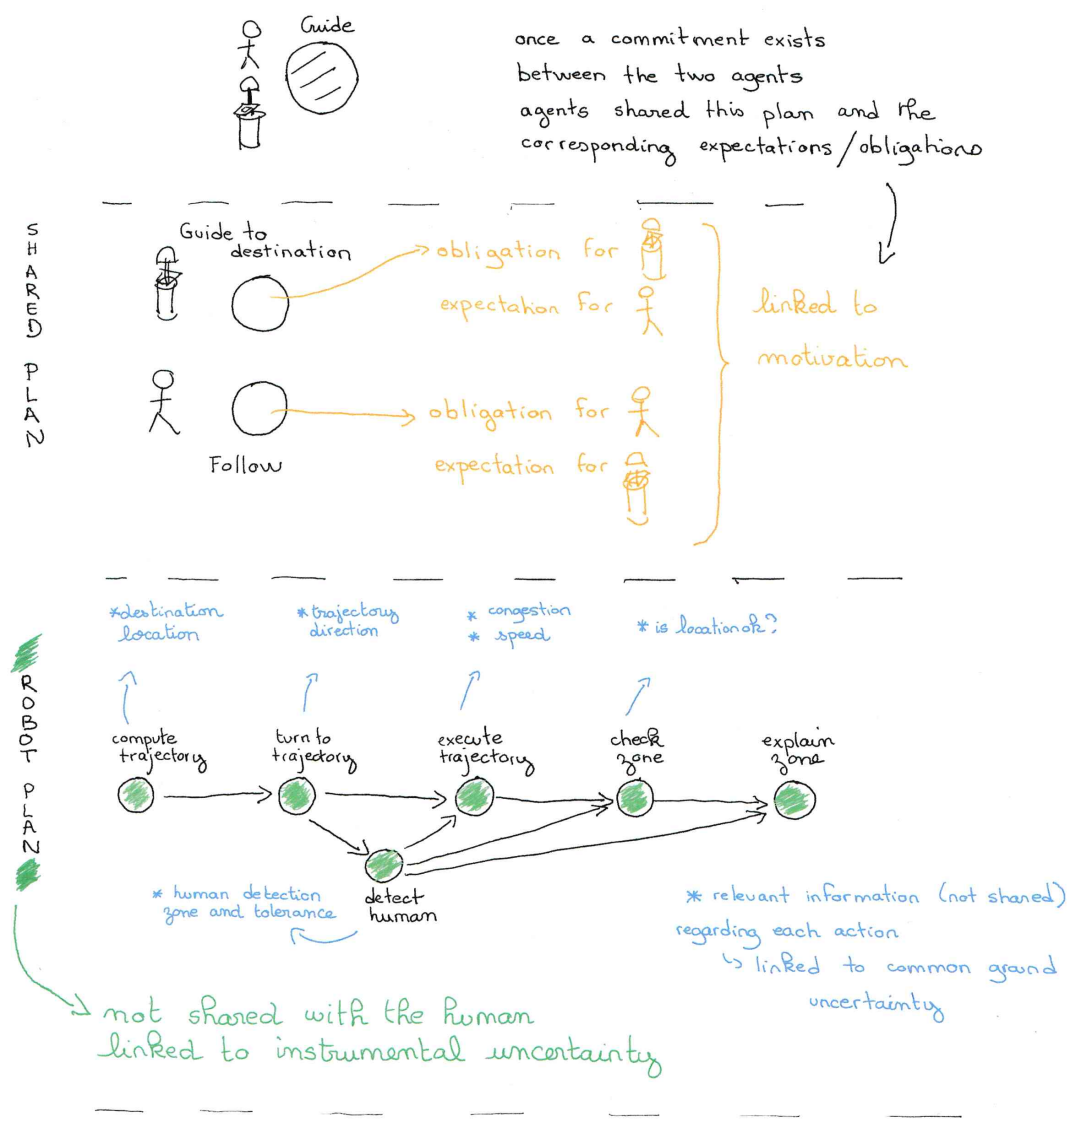 Guide
once a commitment exists
between the two agents
agents shared this plan and the
corresponding expectations/obligations
SHARED PLAN
Guide to
destination
obligation for
expectation for
linked to
motivation
obligation for
expectation for
Follow
* destination
location
* trajectory
direction
* congestion
* speed
* is location ok?
ROBOT PLAN
compute
trajectory
turn to
trajectory
execute
trajectory
check
zone
explain
zone
detect
human
* human detection
zone and tolerance
* relevant information (not shared)
regarding each action
↳ linked to common ground
uncertainty
not shared with the human
linked to instrumental uncertainty